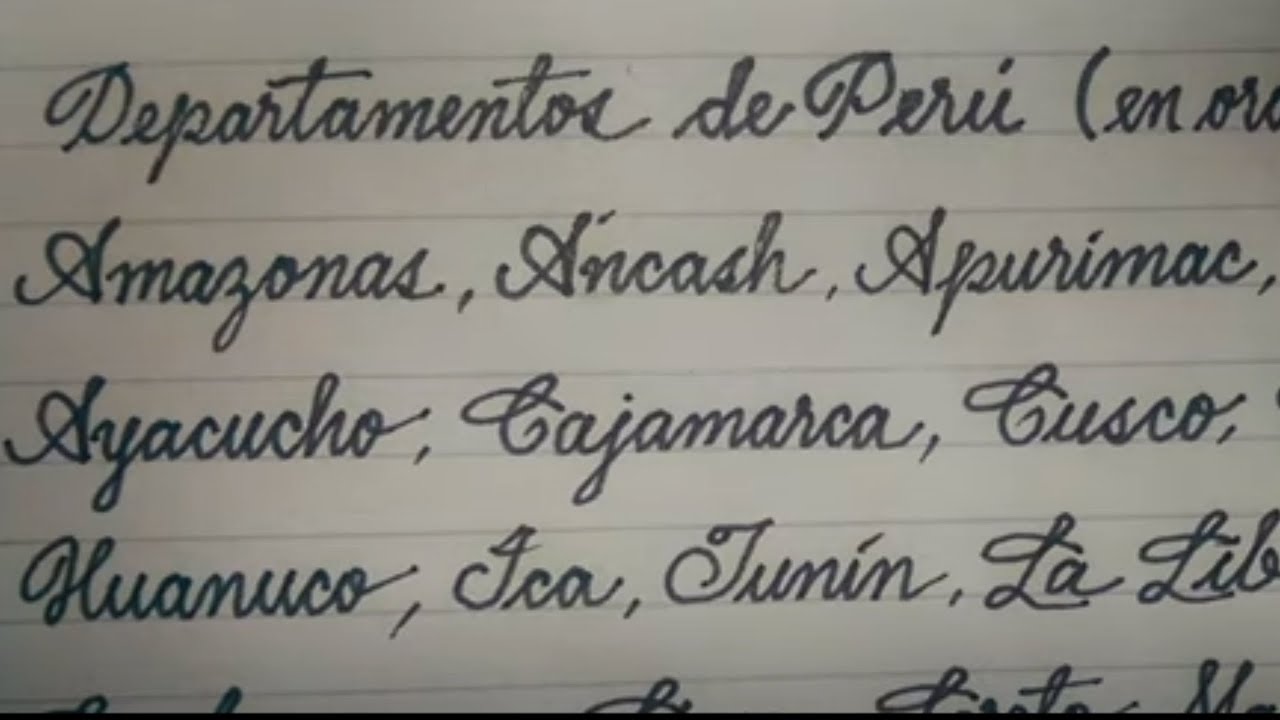 Departamentos de Perú (en ord
Amazonas, Áncash, Apurímac,
Ayacucho, Cajamarca, Cusco,
Huanuco, Ica, Junín, La Lib